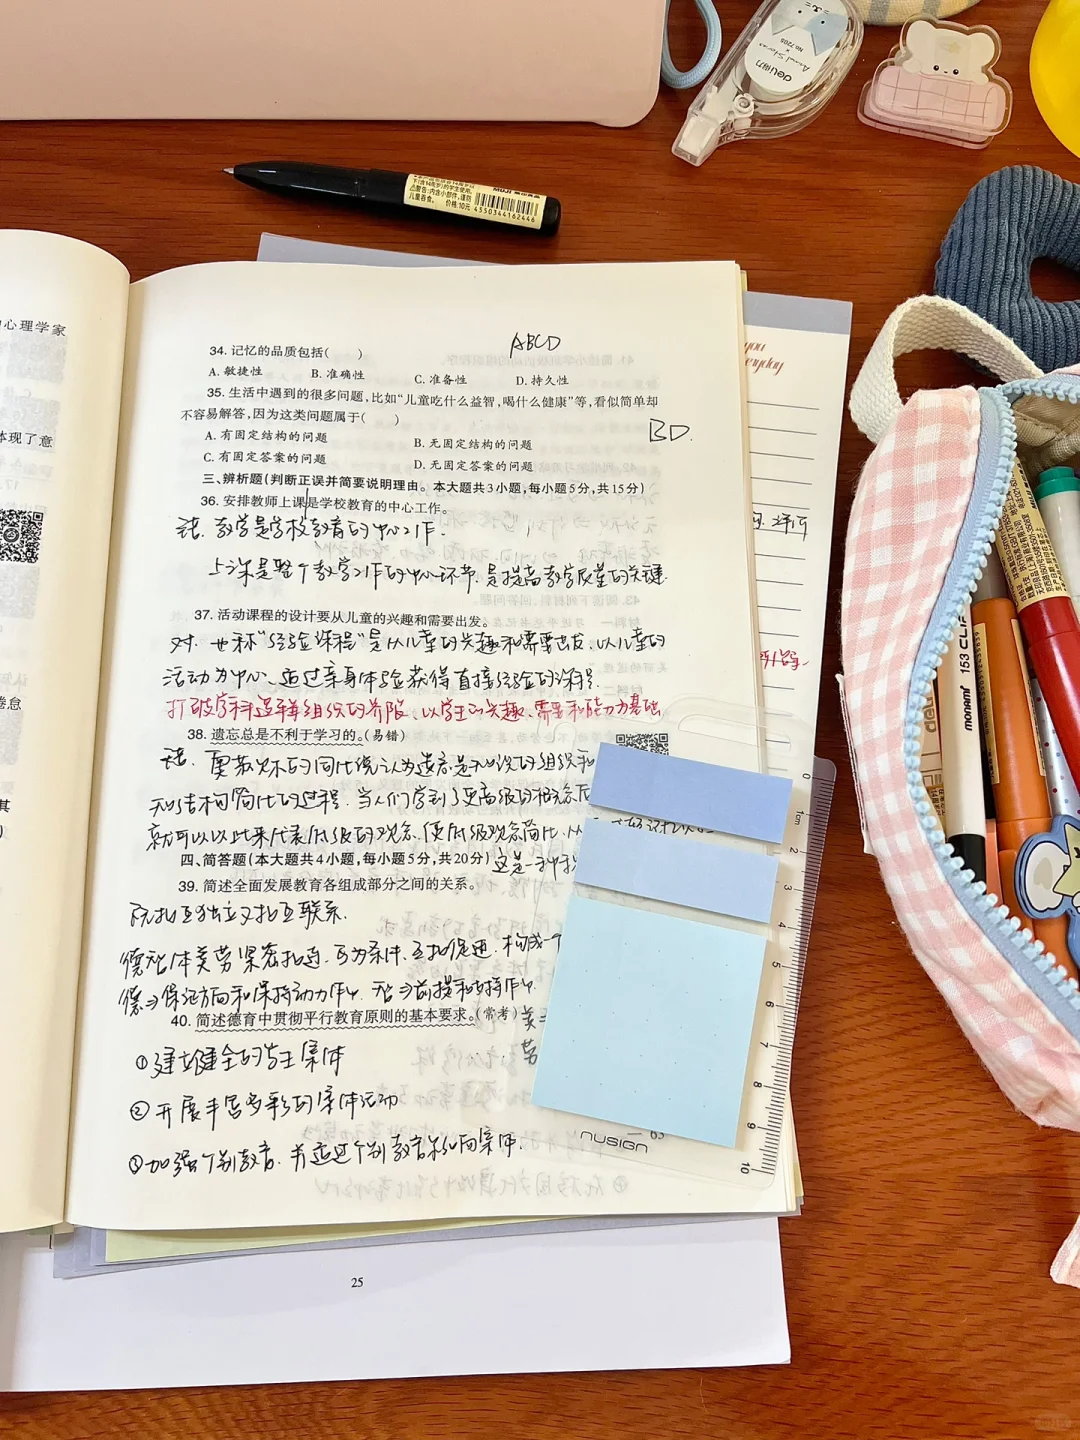 心理学家
体现了意
34. 记忆的品质包括(    )
ABCD
A. 敏捷性 B. 准确性 C. 准备性 D. 持久性
35. 生活中遇到的很多问题，比如“儿童吃什么益智，喝什么健康”等，看似简单却
不容易解答，因为这类问题属于(    )
BD.
A. 有固定结构的问题 B. 无固定结构的问题
C. 有固定答案的问题 D. 无固定答案的问题
三、辨析题(判断正误并简要说明理由。本大题共3小题，每小题5分，共15分)
36. 安排教师上课是学校教育的中心工作。
错. 教学是学校教育的中心工作.
上课是整个教学工作的中心环节. 是提高教学质量的关键.
37. 活动课程的设计要从儿童的兴趣和需要出发。
对. 也称“经验课程”是从儿童的兴趣和需要出发、以儿童的
活动为中心、通过亲身体验获得直接经验的课程.
打破学科逻辑组织的界限、以学生的兴趣、需要和能力为基础
38. 遗忘总是不利于学习的。(易错)
错. 奥苏贝尔的同化说认为遗忘是知识的组织和
知结构简化的过程. 当人们学到了更高级的概念
就可以以此来代表低级的观念. 使低级观念简化.
四、简答题(本大题共4小题，每小题5分，共20分)
这是一种
39. 简述全面发展教育各组成部分之间的关系。
既相互独立又相互联系.
德智体美劳紧密相连. 互为条件. 互相促进. 构成一个
德→保证方向和保持动力作用. 智→前提和支持作用.
40. 简述德育中贯彻平行教育原则的基本要求。(常考)
①建立健全的学生集体
②开展丰富多彩的集体活动
③加强个别教育. 并通过个别教育影响集体.
25
nusign
0 1cm 2 3 4 5 6 7 8 9 10
MUJI
4550344162446
deli得力
Animal Stories
No.7205
monami 153
deli